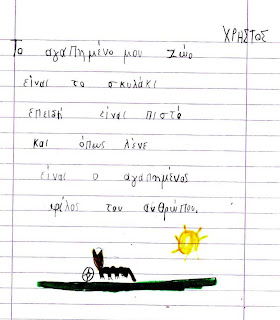 ΧΡΗΣΤΟΣ
Το αγαπημένο μου ζώο
είναι το σκυλάκι
επειδή είναι πιστό
και όπως λένε
είναι ο αγαπημένος
φίλος του ανθρώπου.